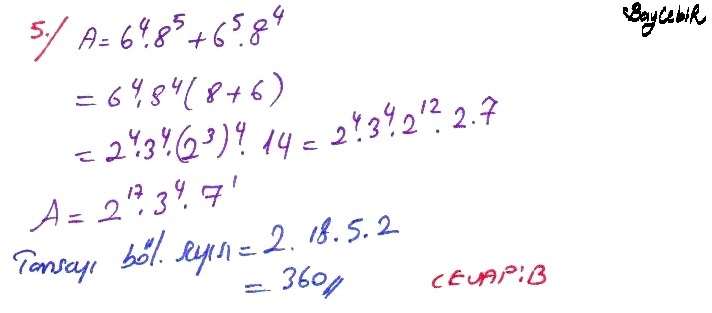 BayCebiR
5./ A = 6⁴.8⁵ + 6⁵.8⁴
= 6⁴.8⁴(8+6)
= 2⁴.3⁴.(2³)⁴.14 = 2⁴.3⁴.2¹².2.7
A = 2¹⁷.3⁴.7¹
Tamsayı böl. sayısı = 2.18.5.2
= 360//
CEVAP:B